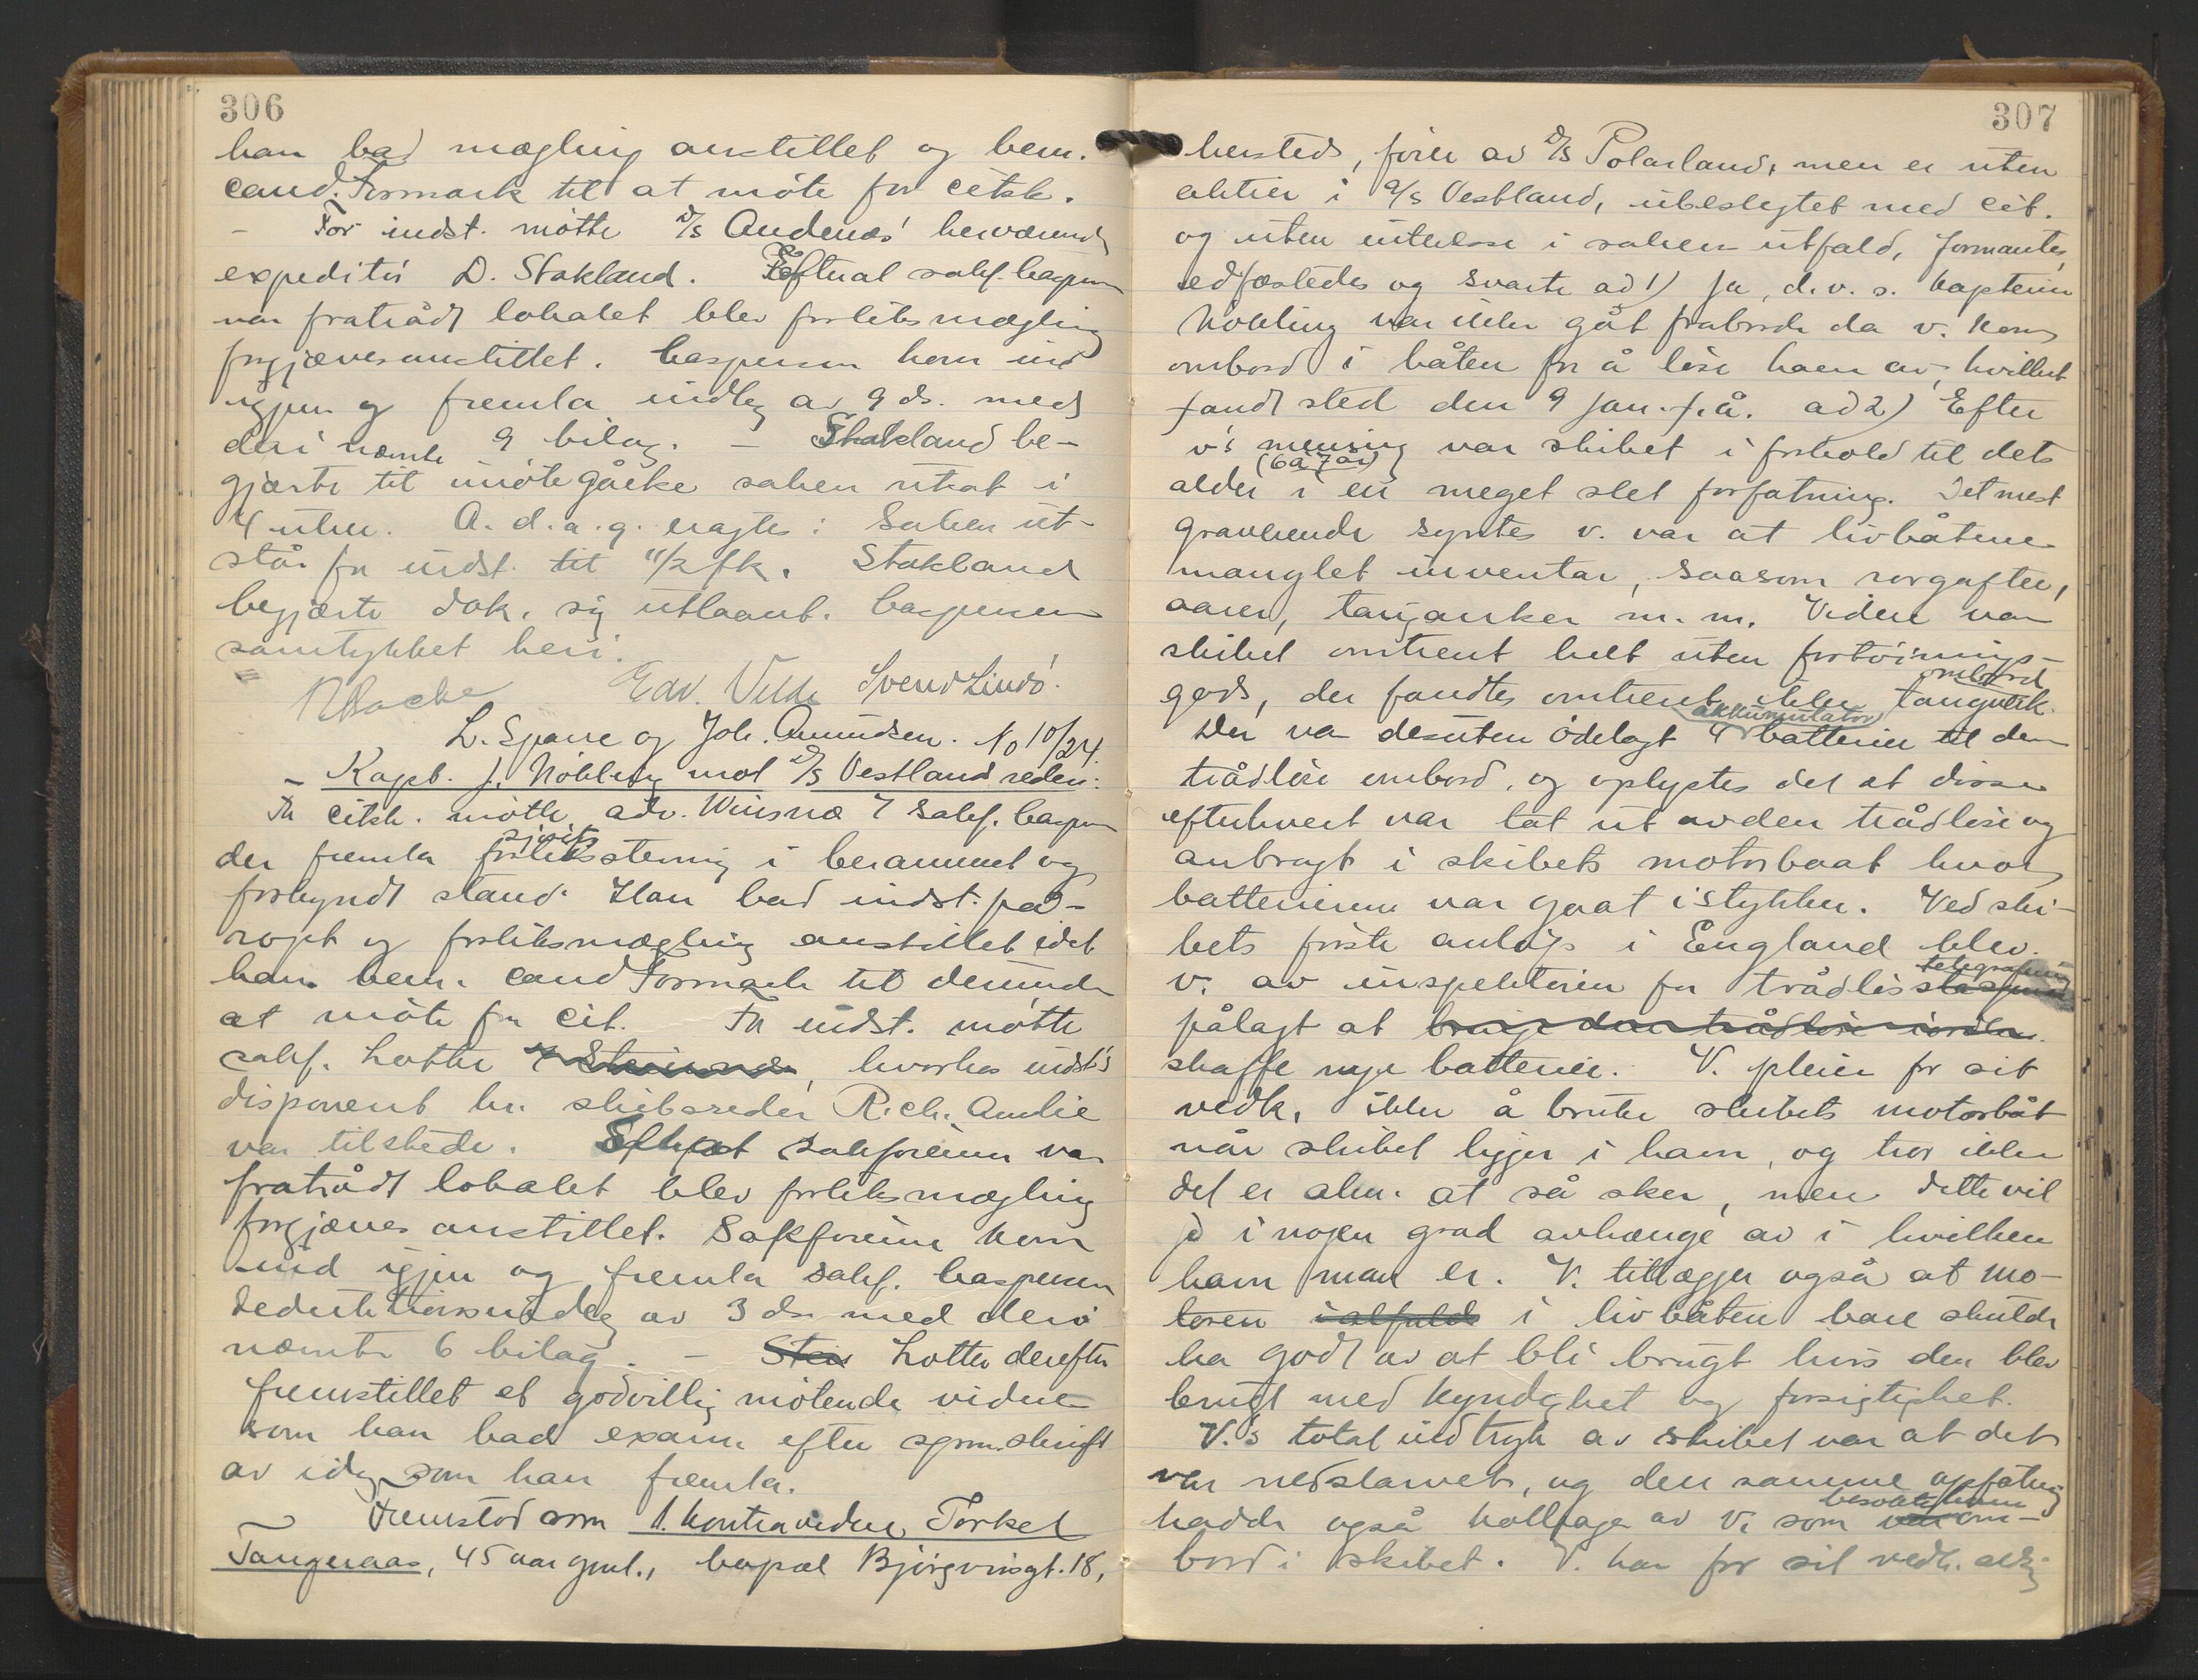 306
han bad mægling anstillet og bem.
cand. Formark til at møte for citsk.
- For indst. møtte D/S Andenæs' herværende
expeditør D. Stakland. Eftat sakf. Caspersen
var fratrådt lokalet blev forliksmægling
forgjæves anstillet. Caspersen kom ind
igjen og fremla indlæg av 9 ds. med
deri nævnte 9 bilag. - Stakland be-
gjærte til imøtegåelse saken utsat i
4 uker. A. d. a. g. eragtes: Saken ut-
står for indst. til 11/2 fk. Stakland
begjærte dok. sig utlaant. Caspersen
samtykket heri.
Edv. Svend Lindö.
L. Sparre og Joh. Amundsen. No 10/24.
- Kapt. J. Nökling mot D/S Vestland reder:
For citsk. møtte adv. Winsnæs / sakf. Caspersen
der fremla sjørets
forliksstevning i berammet og
forkyndt stand. Han bad indst. paa-
ropt og forliksmægling anstillet idet
han bem. cand Formark til derunder
at møte for cit. For indst. møtte
sakf. Lotte , hvorhos indst's
disponent hr. skibsreder Rich. Amlie
var tilstede. Eftat sakførerne var
fratrådt lokalet blev forliksmægling
forgjæves anstillet. Sakførerne kom
ind igjen og fremla sakf. Caspersen
deduktionsindlæg av 3 ds. med deri
nævnte 6 bilag. - Stev Lotte derefter
fremstillet et godvillig møtende vidne
som han bad exam. efter spm.skrift
av idag som han fremla.
Fremstod som 1. kontravidne Torkel
Tangeraas, 45 aar gml., bopæl Bjørgvinsgt. 18,
307
hersteds, fører av D/S Polarland, men er uten
aktier i A/S Vestland, ubeslegtet med cit.
og uten interesse i sakens utfald, formantes,
edfæstedes og svarte ad 1) Ja, d.v.s. kaptein
Nökling var ikke gåt fraborde da v. kom
ombord i båten for å løse ham av, hvilket
fandt sted den 9 jan. f.å. ad 2) Efter
v's mening var skibet i forhold til dets
(6 à 7 år)
alder i en meget slet forfatning. Det mest
graverende syntes v. var at livbåtene
manglet inventar, saasom rorgafter,
aarer, tauganker m.m. Videre var
skibet omtrent helt uten fortøinings-
ombord
gods, der fandtes omtrent ikke taugverk
akkumulator
Der var desuten ødelagt 4 batterier til den
trådløse ombord, og oplystes det at disse
efterhvert var tat ut av den trådløse og
anbragt i skibets motorbaat hvor
batterierne var gaat istykker. Ved ski-
bets første anløp i England blev
telegrafering
v. av inspektøren for trådløs
pålagt at bruge den trådløse
skaffe nye batterier. V. pleier for sit
vedk. ikke å bruke skibets motorbåt
når skibet ligger i havn, og tror ikke
det er alm. at så sker, men dette vil
jo i nogen grad avhænge av i hvilken
havn man er. V. tillægger også at mo-
toren ialfald i livbåten bare skulde
ha godt av at bli brugt hvis den blev
brugt med kyndighet og forsigtighet.
V.'s total indtryk av skibet var at det
var nedslarvet, og den samme opfatning
besøkte ham
hadde også kollega av v. som var om-
bord i skibet. V. har for sit vedk. aldrig